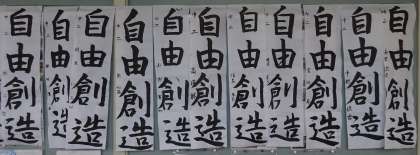 自由創造
自由創造
自由創造
自由創造
自由創造
自由創造
自由創造
自由創造
自由創造
自由創造
自由創造